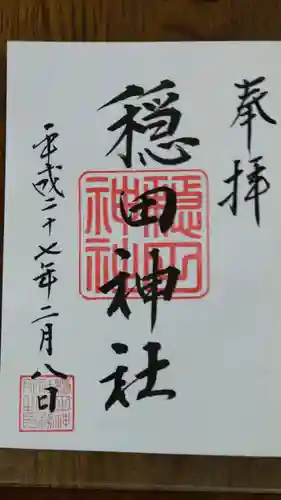 奉拝
穏田神社
穏田神社
平成二十七年二月八日